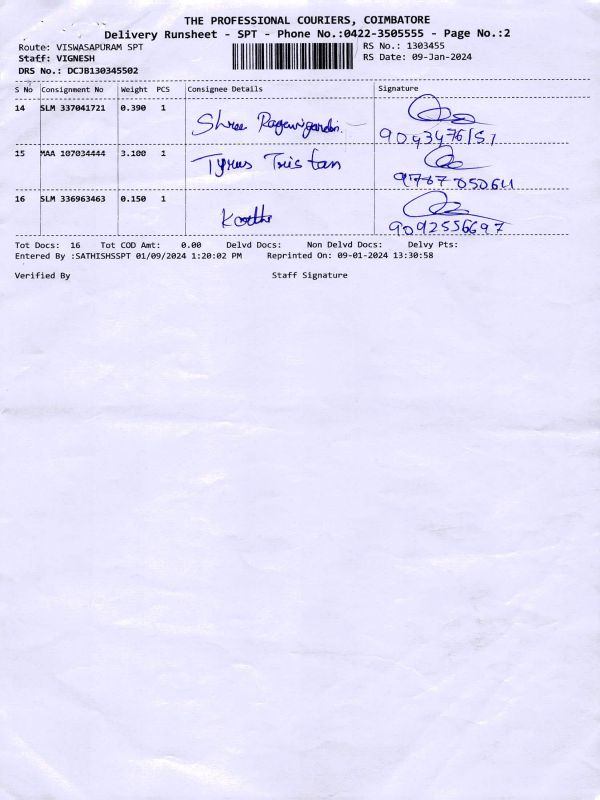 THE PROFESSIONAL COURIERS, COIMBATORE
Delivery Runsheet - SPT - Phone No.:0422-3505555 - Page No.:2
Route: VISWASAPURAM SPT RS No.: 1303455
Staff: VIGNESH RS Date: 09-Jan-2024
DRS No.: DCJB130345502
S No Consignment No Weight PCS Consignee Details Signature
14 SLM 337041721 0.390 1 Shree
15 MAA 107034444 3.100 1 Tyrus Tristan
9787050564
16 SLM 336963463 0.150 1
9092556697
Tot Docs: 16 Tot COD Amt: 0.00 Delvd Docs: Non Delvd Docs: Delvy Pts:
Entered By :SATHISHSSPT 01/09/2024 1:20:02 PM Reprinted On: 09-01-2024 13:30:58
Verified By Staff Signature